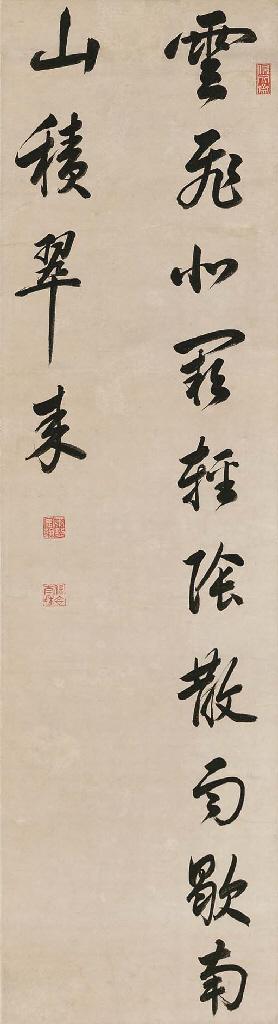 雲飛北闕輕陰散雨歇南
山積翠來